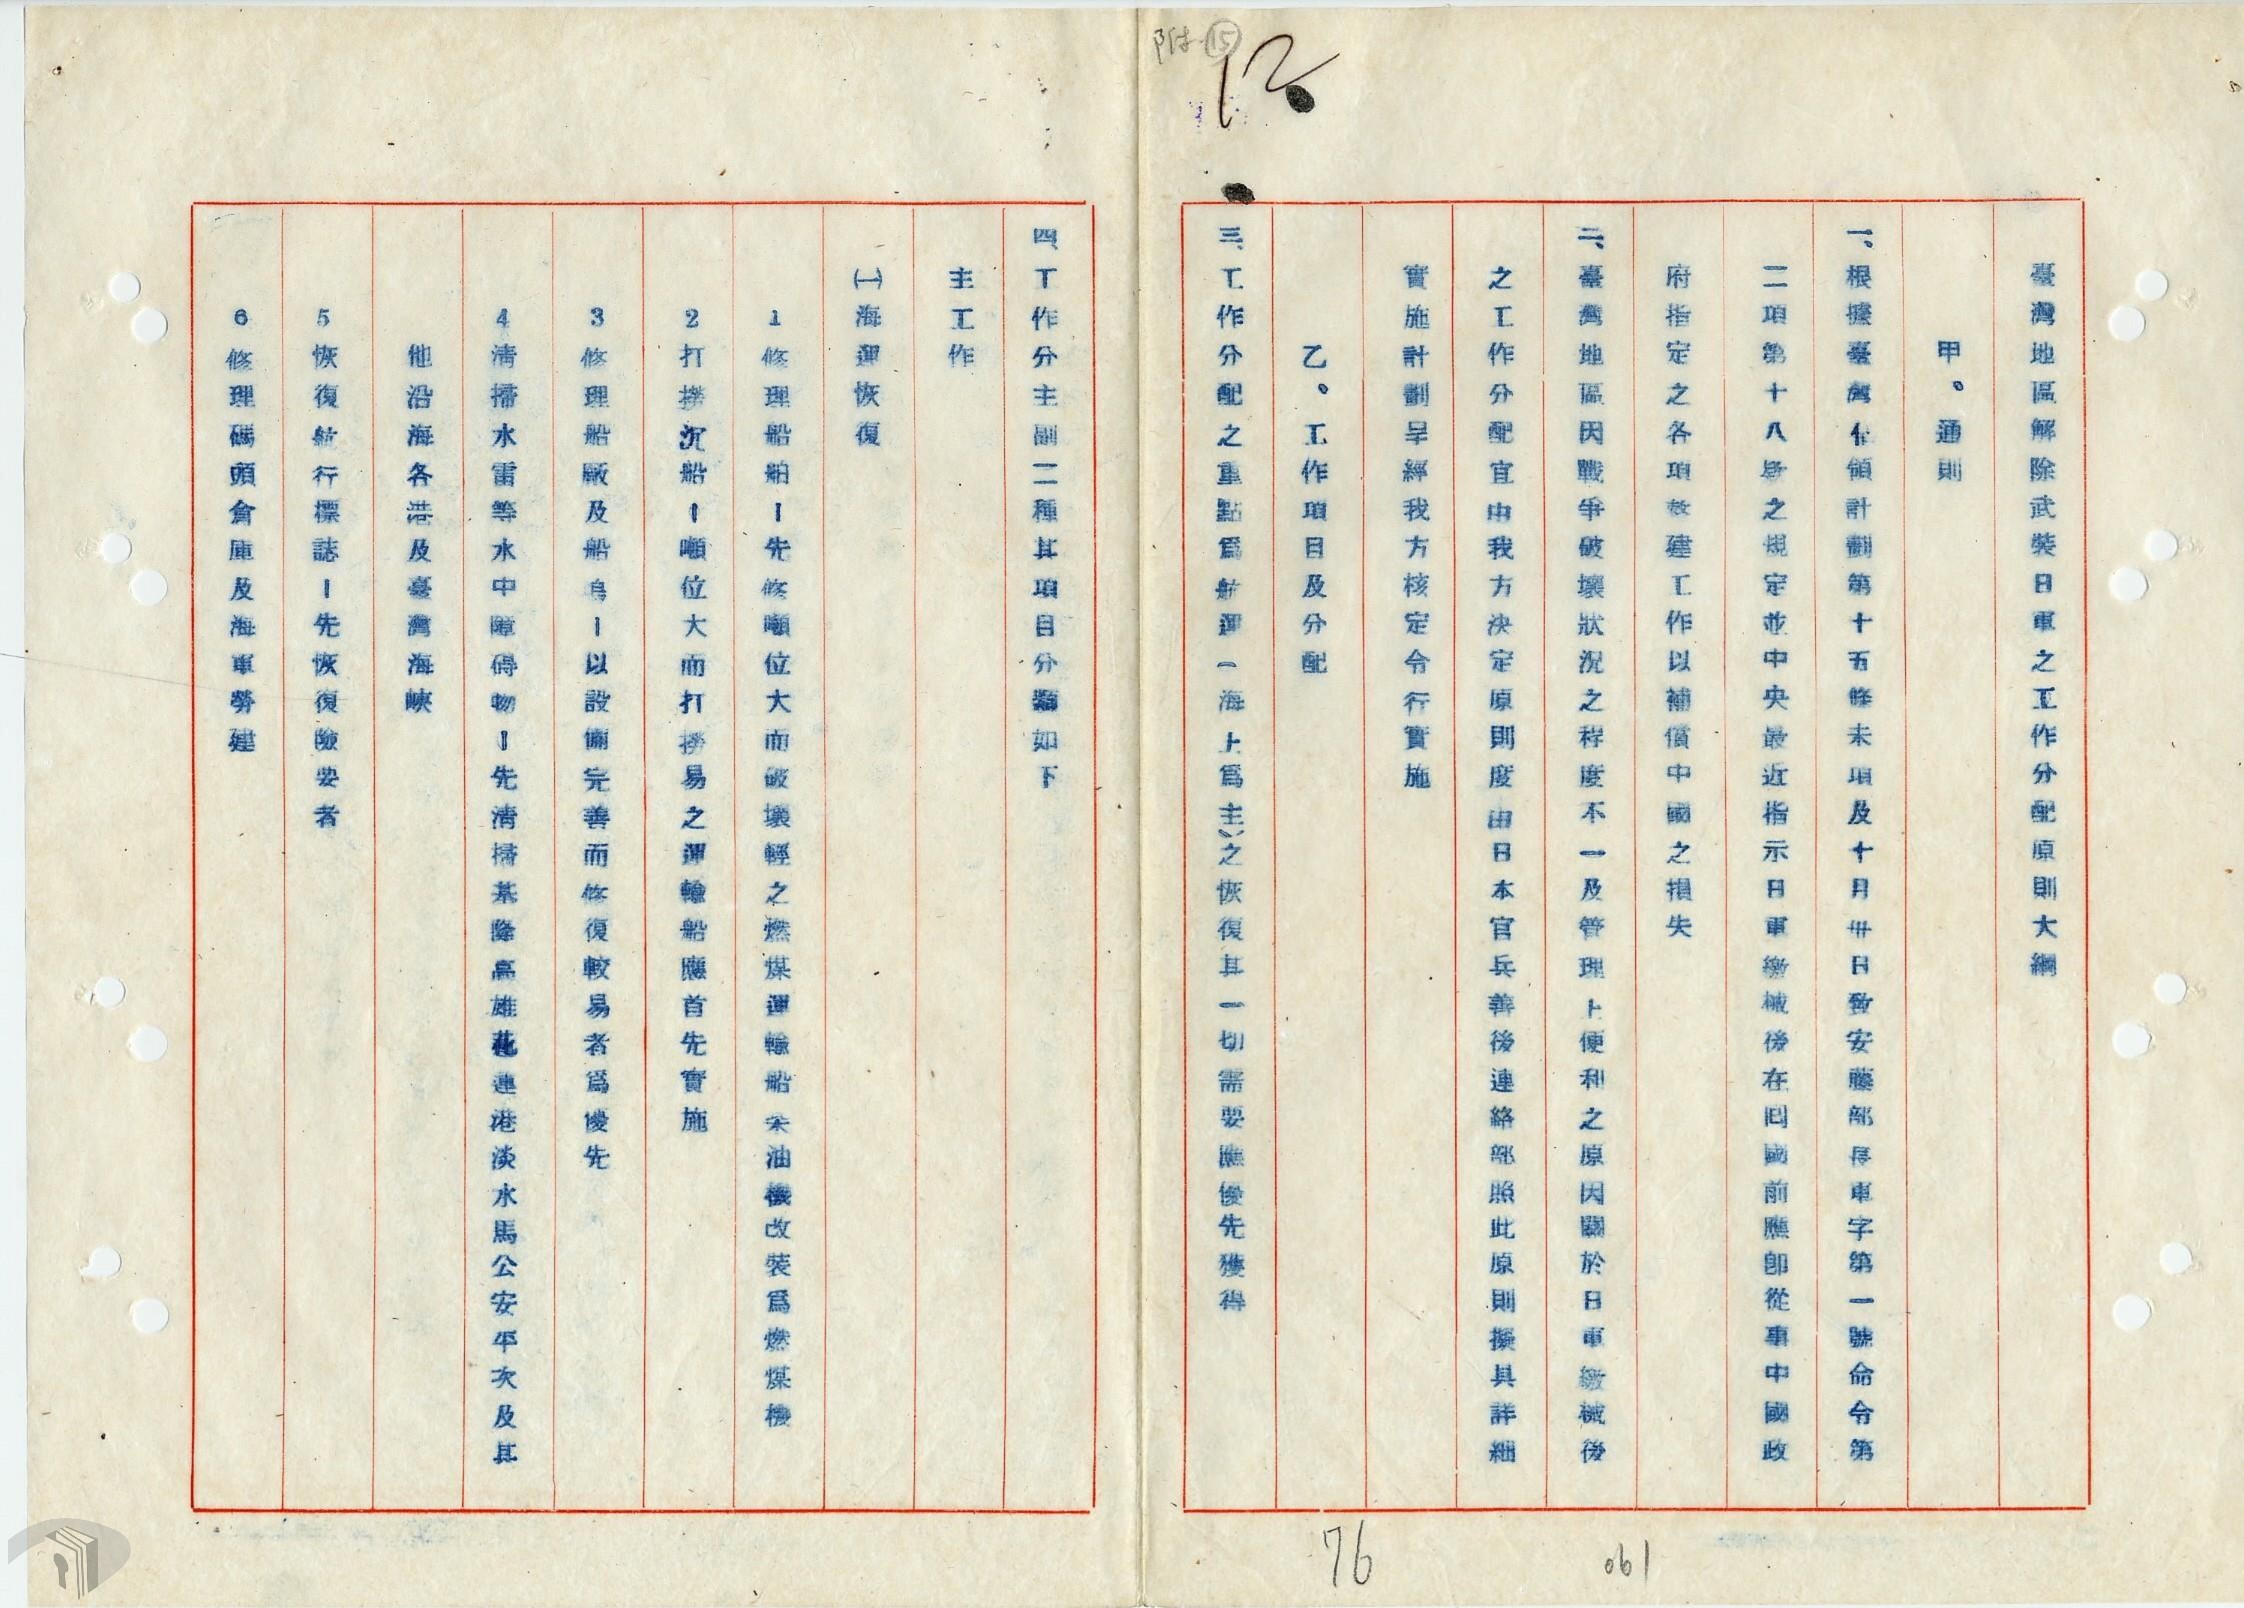 附 15
12
臺灣地區解除武裝日軍之工作分配原則大綱
甲。通則
一、根據臺灣佔領計劃第十五條末項及十月卅日致安藤部長軍字第一號命令第
二項第十八款之規定並中央最近指示日軍繳械後在囘國前應卽從事中國政
府指定之各項敎建工作以補償中國之損失
二、臺灣地區因戰爭破壞狀況之程度不一及管理上便利之原因關於日軍繳械後
之工作分配宜由我方決定原則度由日本官兵善後連絡部照此原則擬具詳細
實施計劃呈經我方核定令行實施
乙。工作項目及分配
三、工作分配之重點爲航運(海上爲主)之恢復其一切需要應優先獲得
四、工作分主副二種其項目分類如下
主工作
㈠海運恢復
1修理船舶—先修噸位大而破壞輕之燃煤運輸船 油機改裝爲燃煤機
2打撈沉船—噸位大而打撈易之運輸船應首先實施
3修理船廠及船塢—以設備完善而修復較易者爲優先
4淸掃水雷等水中障碍物—先淸掃基隆高雄花連港淡水馬公安平次及其
他沿海各港及臺灣海峽
5恢復航行標誌—先恢復險要者
6修理碼頭倉庫及海軍勞建
76
061